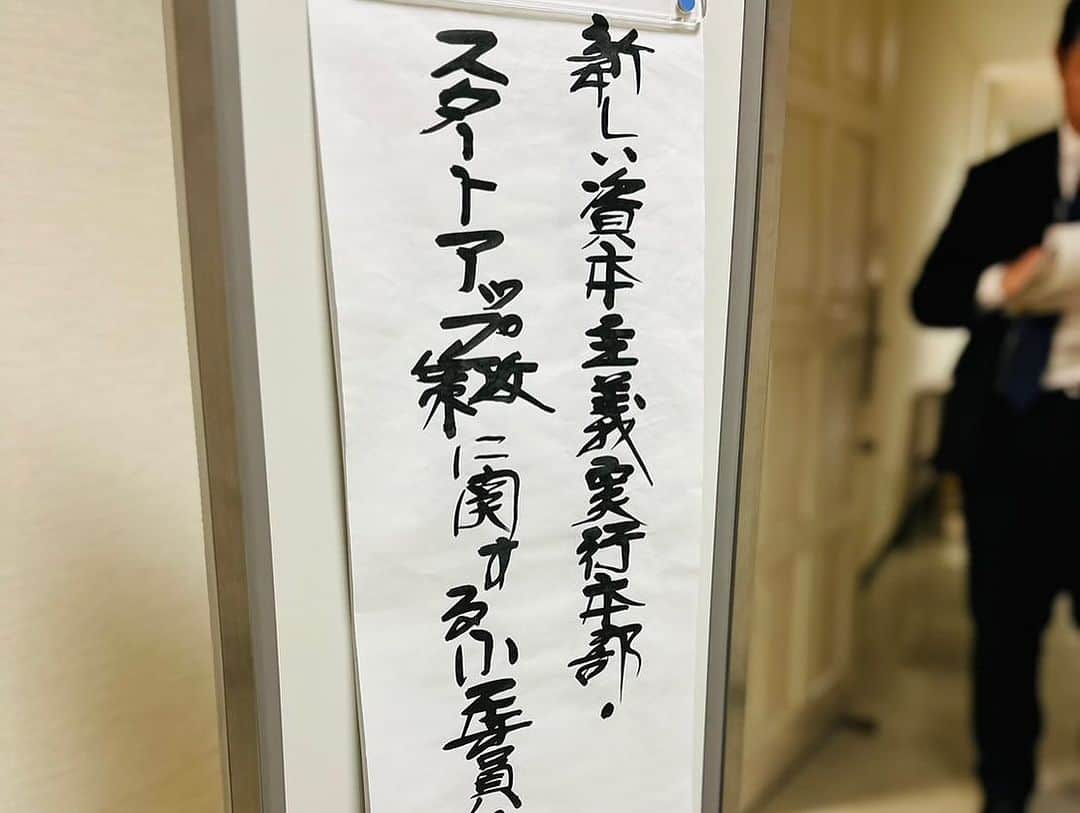 新しい資本主義実行本部・
スタートアップ政策に関する小委員